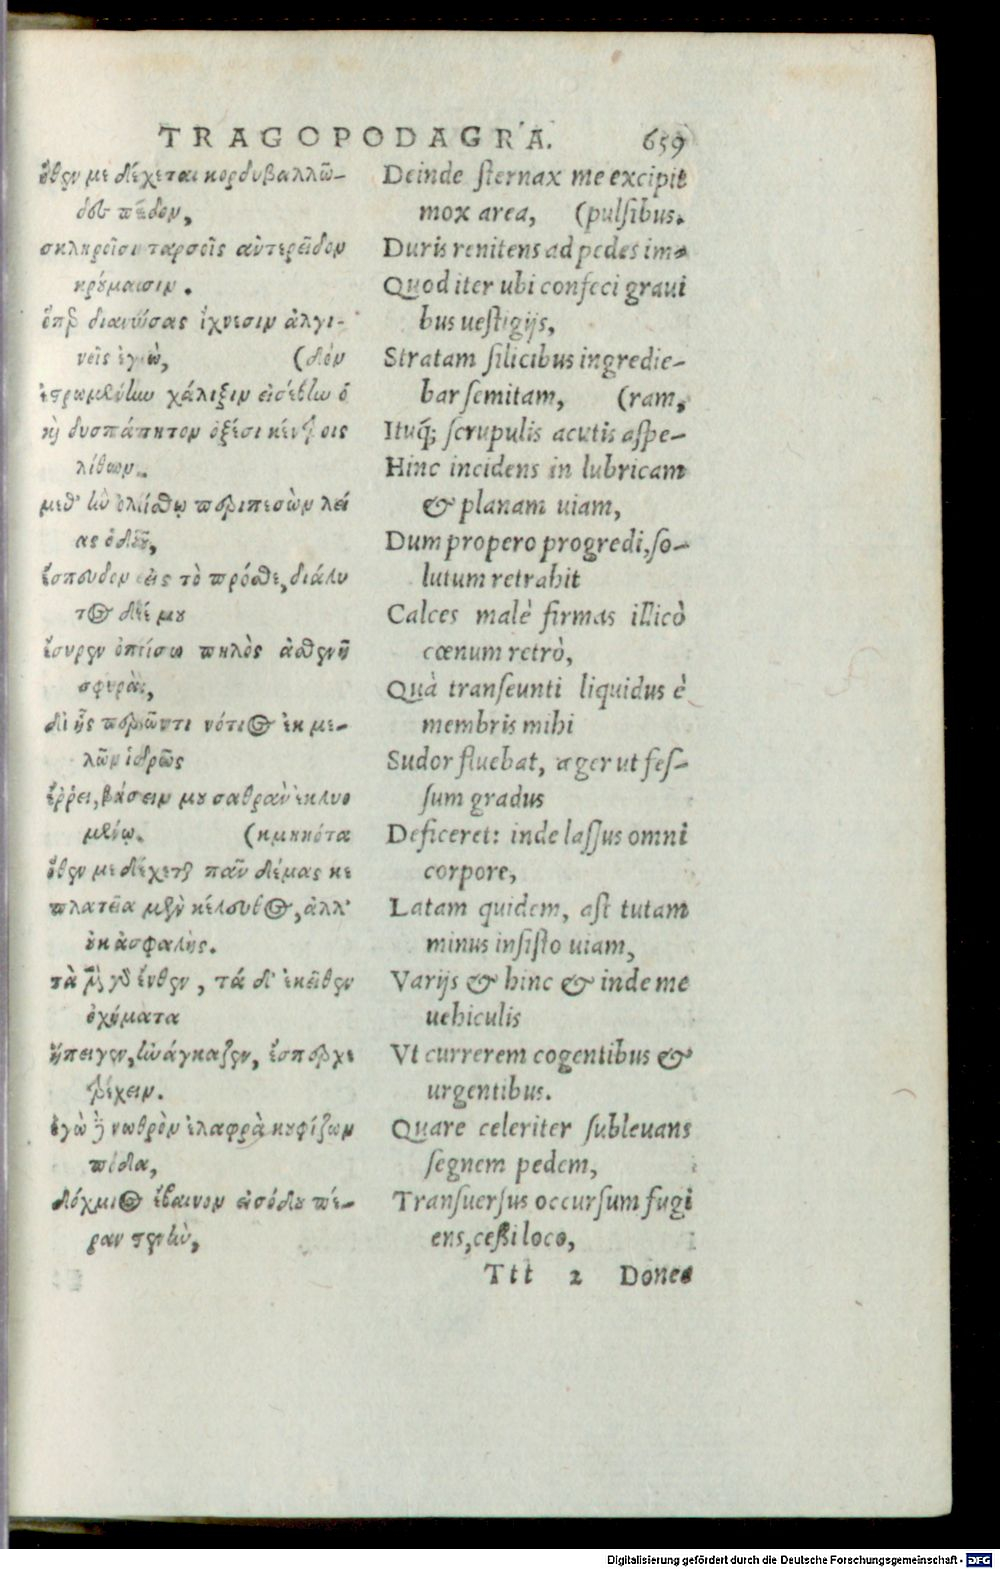 TRAGOPODAGRA. 659
ὅθεν με δέχεται κορδυβαλλῶ-
δες πέδον,
σκληροῖσι ταρσοῖς ἀντερεῖδον
κρούμασιν.
ὅπερ διανύσας ἴχνεσιν ἀλγι-
νεῖς ἐγὼ, (δὸν
ἐστρωμένην χάλιξιν εἰσέβην ὁ
καὶ δυσπάτητον ὀξέσι κέντροις
λίθων.
μεθ' ἣν ὀλίσθῳ περιπεσὼν λεί
ας ὁδοῦ,
ἔσπευδον εἰς τὸ πρόσθε, διάλυ
τος δέ μου
ἔσυρεν ὀπίσω πηλὸς ἀσθενῆ
σφυρὰ,
δι' ἧς περῶντι νότιος ἐκ με-
λῶν ἱδρῶς
ἔρρει, βάσειν μου σαθρὰν ἐκλυο
μένῳ. (κμηκότα
ὅθεν με δέχεται πᾶν δέμας κε
πλατεῖα μὲν κέλευθος, ἀλλ'
οὐκ ἀσφαλής.
τὰ μὲν γὰρ ἔνθεν, τά δ' ἐκεῖθεν
ὀχήματα
ἤπειγεν, ἠνάγκαζεν, ἔσπερχε
τρέχειν.
ἐγὼ δὲ νωθρὸν ἐλαφρὰ κουφίζων
πόδα,
δόχμιος ἔβαινον εἰσόδου πέ-
ραν στενὴν,
Deinde sternax me excipit
mox area, (pulsibus.
Duris renitens ad pedes im-
Quod iter ubi confeci graui
bus uestigijs,
Stratam silicibus ingredie-
bar semitam, (ram,
Ituq; scrupulis acutis aspe-
Hinc incidens in lubricam
& planam uiam,
Dum propero progredi, so-
lutum retrahit
Calces malè firmas illicò
cœnum retrò,
Quà transeunti liquidus è
membris mihi
Sudor fluebat, æger ut fes-
sum gradus
Deficeret: inde lassus omni
corpore,
Latam quidem, ast tutam
minus insisto uiam,
Varijs & hinc & inde me
uehiculis
Vt currerem cogentibus &
urgentibus.
Quare celeriter subleuans
segnem pedem,
Transuersus occursum fugi
ens, cessi loco,
Ttt 2 Donec
Digitalisierung gefördert durch die Deutsche Forschungsgemeinschaft - DFG